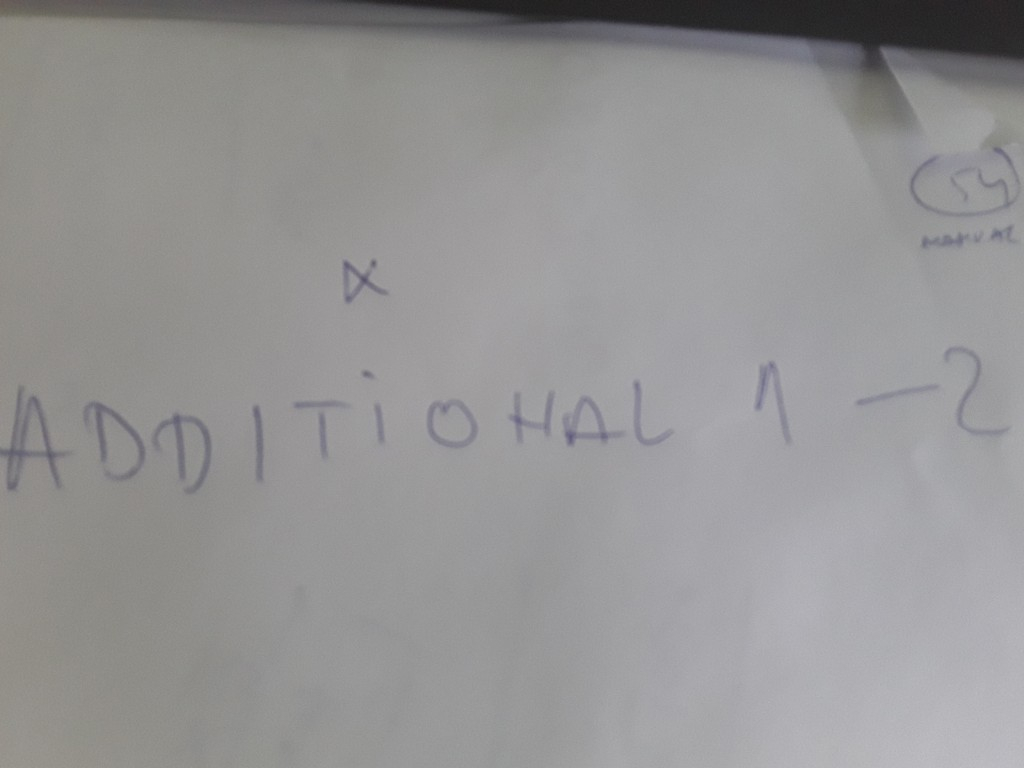 54
MANUAL
X
ADDITIONAL 1-2